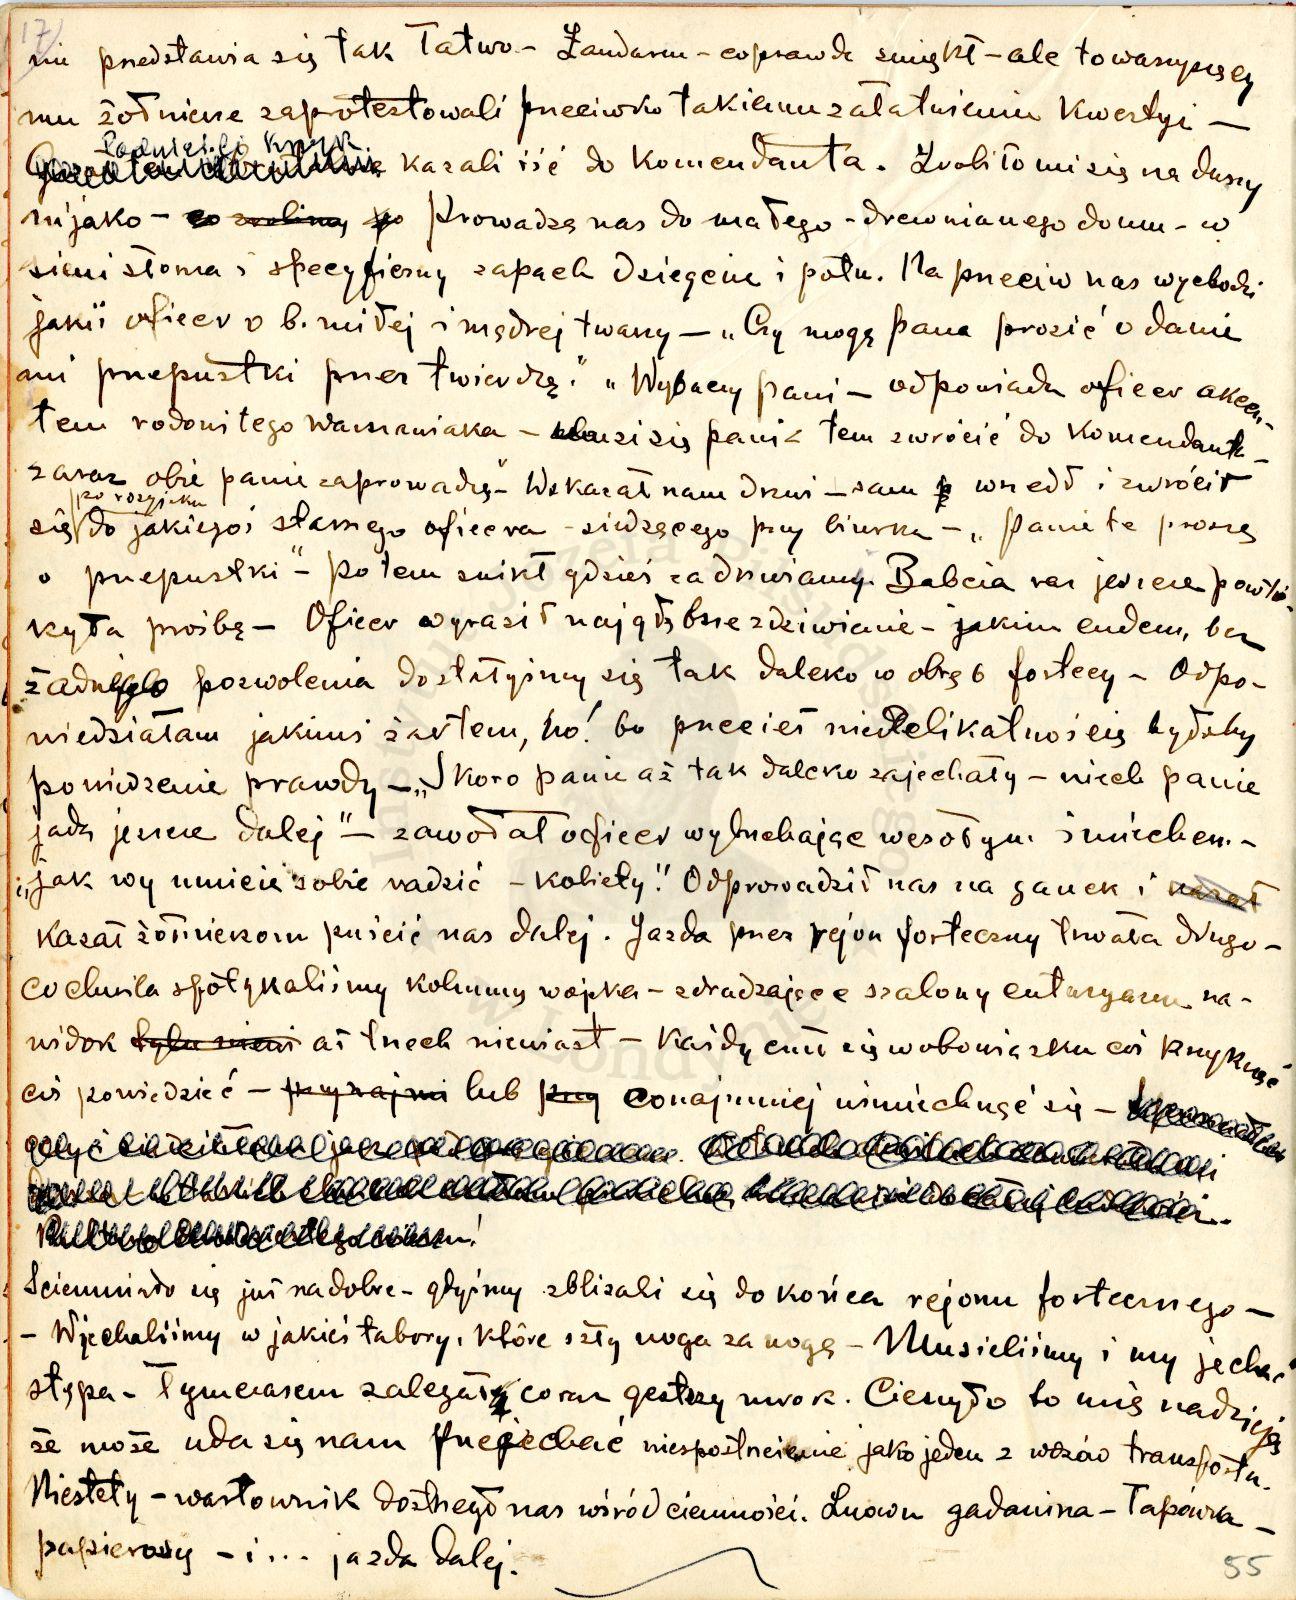 17
nie przedstawia się tak łatwo – Żandarm – coprawda zmiękł – ale towarzyszący
mu żołnierze zaprotestowali przeciwko takiemu załatwieniu kwestyi –
Podnieśli krzyk
kazali iść do Komendanta. Zrobiło mi się na duszy
nijako – co Prowadzą nas do małego – drewnianego domu – w
sieni słoma i specyficzny zapach dziegciu i potu. Na przeciw nas wychodzi
jakiś oficer o b. miłej i mądrej twarzy – „Czy mogę pana prosić o danie
mi przepustki przez twierdzę." „Wybaczy pani – odpowiada oficer akcen-
tem rodowitego warszawiaka – musi się pani z tem zwrócić do Komendanta –
zaraz obie panie zaprowadzę" – Wskazał nam drzwi – sam wszedł i zwrócił
po rosyjsku
się do jakiegoś starszego oficera – siedzącego przy biurku – „Panie te proszą
o przepustki" – potem znikł gdzieś za drzwiami. Babcia raz jeszcze powtó-
rzyła prośbę – Oficer wyraził najgłębsze zdziwienie – jakim cudem, bez
żadnego pozwolenia dostałyśmy się tak daleko w obręb fortecy – Odpo-
wiedziałam jakimś żartem, bo przecież niedelikatnością byłoby
powiedzenie prawdy – „Skoro panie aż tak daleko zajechały – niech panie
jadą jeszcze dalej" – zawołał oficer wybuchając wesołym śmiechem. –
i „jak wy umiecie sobie radzić – kobiety!" Odprowadził nas na ganek i kazał
kazał żołnierzom puścić nas dalej. Jazda przez rejon forteczny trwała długo –
co chwila spotykaliśmy kolumny wojska – zdradzające szalony entuzyazm na –
widok aż trzech niewiast – każdy czuł się w obowiązku coś krzyknąć
coś powiedzieć – przynajmn lub przy conajmniej uśmiechnąć się –
Ściemniało się już na dobre – gdyśmy zbliżali się do końca rejonu fortecznego –
– Wjechaliśmy w jakieś tabory, które szły noga za nogą – Musieliśmy i my jechać
stępa – Tymczasem zalegał coraz gęstszy mrok. Cieszyło to mię nadzieją
że może uda się nam przejechać niespostrzeżenie jako jeden z wozów transportu.
Niestety – wartownik dostrzegł nas wśród ciemności. Znowu gadanina – łapówka –
papierosy – i ... jazda dalej.
55